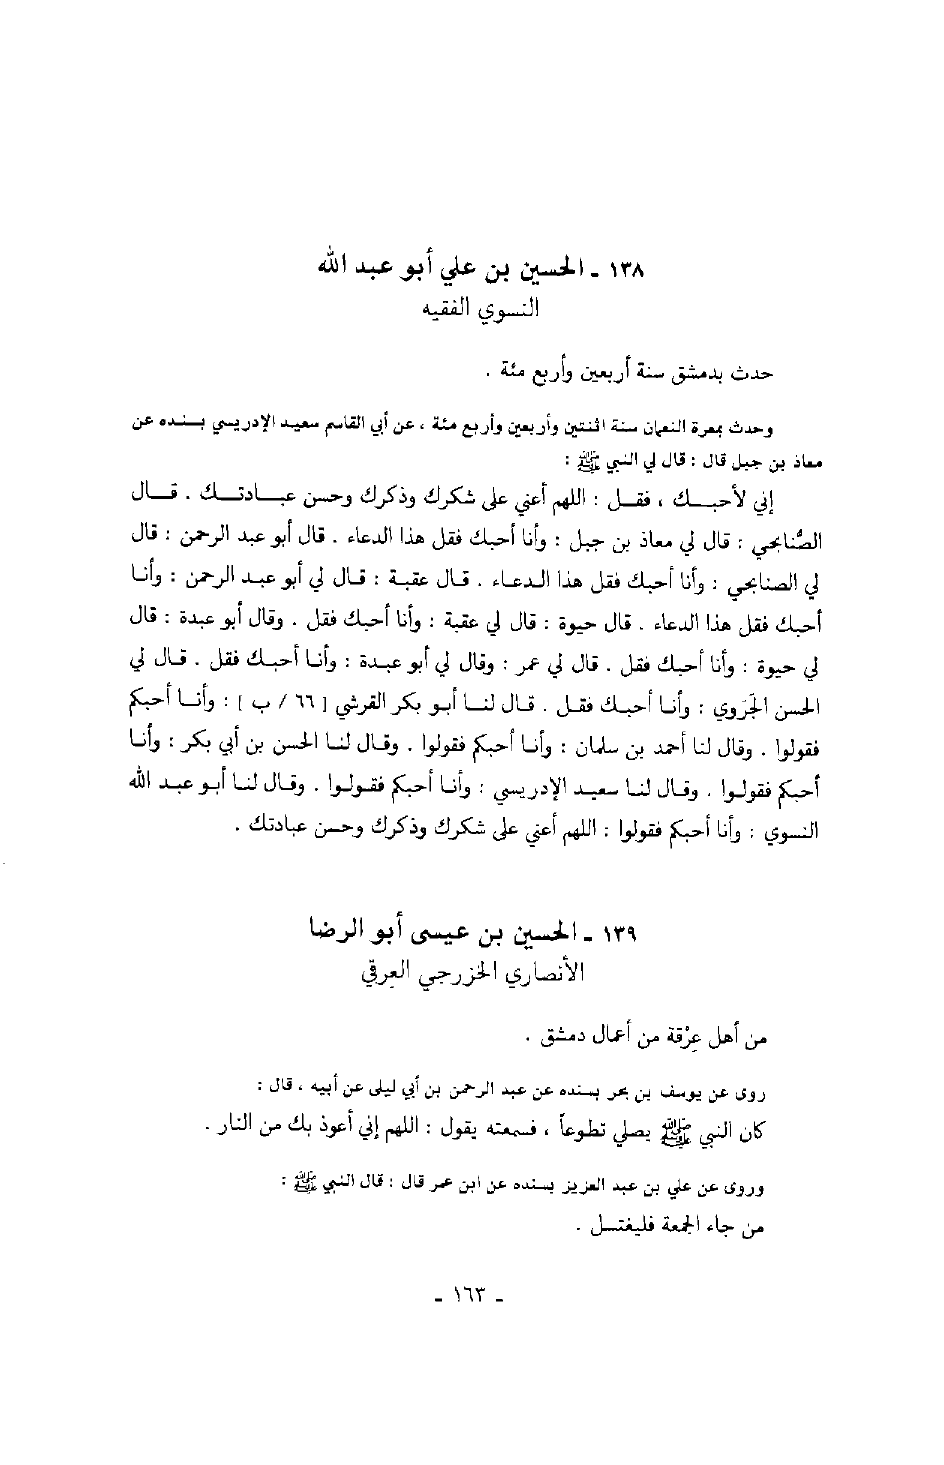 ١٣٨ ـ الحسين بن علي أبو عبد الله
النسوي الفقيه
حدث بدمشق سنة أربعين وأربع مئة .
وحدث بمعرة النعمان سنة اثنتين وأربعين وأربع مئة ، عن أبي القاسم سعيد الإدريسي بسنده عن
معاذ بن جبل قال : قال لي النبي ﷺ :
إني لأحبك ، فقل : اللهم أعني على شكرك وذكرك وحسن عبادتك . قال
الصُّنابحي : قال لي معاذ بن جبل : وأنا أحبك فقل هذا الدعاء . قال أبو عبد الرحمن : قال
لي الصنابحي : وأنا أحبك فقل هذا الدعاء . قال عقبة : قال لي أبو عبد الرحمن : وأنا
أحبك فقل هذا الدعاء . قال حيوة : قال لي عقبة : وأنا أحبك فقل . وقال أبو عبدة : قال
لي حيوة : وأنا أحبك فقل . قال لي عمر : وقال لي أبو عبدة : وأنا أحبك فقل . قال لي
الحسن الجَرَوي : وأنا أحبك فقل . قال لنا أبو بكر القرشي [ ٦٦ / ب ] : وأنا أحبكم
فقولوا . وقال لنا أحمد بن سلمان : وأنا أحبكم فقولوا . وقال لنا الحسن بن أبي بكر : وأنا
أحبكم فقولوا . وقال لنا سعيد الإدريسي : وأنا أحبكم فقولوا . وقال لنا أبو عبد الله
النسوي : وأنا أحبكم فقولوا : اللهم أعني على شكرك وذكرك وحسن عبادتك .
١٣٩ ـ الحسين بن عيسى أبو الرضا
الأنصاري الخزرجي العرقي
من أهل عِرْقة من أعمال دمشق .
روى عن يوسف بن بحر بسنده عن عبد الرحمن بن أبي ليلى عن أبيه ، قال :
كان النبي ﷺ يصلي تطوعاً ، فسمعته يقول : اللهم إني أعوذ بك من النار .
وروى عن علي بن عبد العزيز بسنده عن ابن عمر قال : قال النبي ﷺ :
من جاء الجمعة فليغتسل .
ـ ١٦٣ ـ